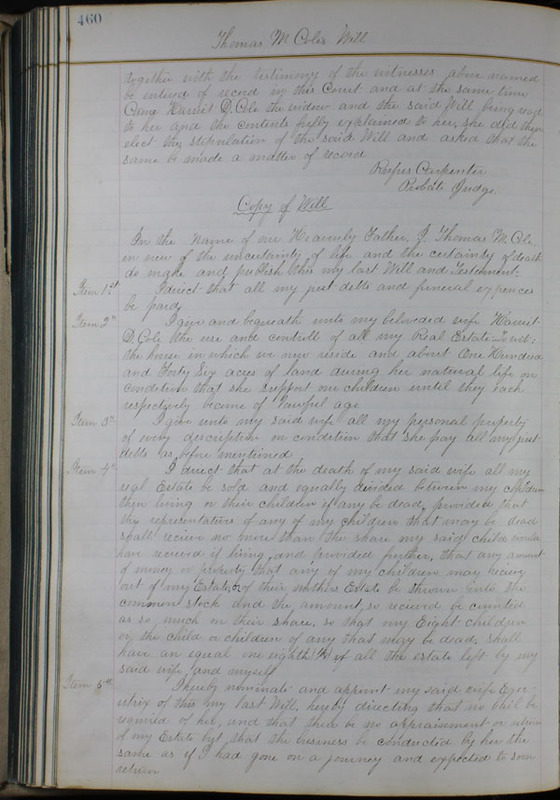 460
Thomas M. Coles Will
together with the testimony of the witnesses above named
be entered of record in this Court and at the same time
Came Harriet D. Cole the widow and the said Will being read
to her and the contents fully explained to her, she did then
elect the stipulation of the said Will and asked that the
same be made a matter of record
Rufus Carpenter
Probate Judge.
Copy of Will
In the Name of our Heavenly Father, I, Thomas M. Cole
in view of the uncertainty of life and the certainty of death
do make and publish this my last Will and Testament.
Item 1st I direct that all my just debts and funeral expences
be paid
Item 2nd I give and bequeath unto my beloveded wife Harriet
D. Cole the use and controll of all my Real Estate
the house in which we now reside and about One Hundred
and Forty Six acres of land during her natural life on
condition that she support our children until they each
respectively become of lawful age
Item 3rd I give unto my said wife all my personal property
of every description on condition that she pay all my just
debts as before mentioned
Item 4th I direct that at the death of my said wife all my
real Estate be sold and equally divided between my children
then living or their children if any be dead, provided that
the representative of any of my children that may be dead
shall recieve no more than the share my said child would
have received if living, and provided further, that any amount
of money or property that any of my children may recieve
out of my Estate, or of their mothers Estate be thrown into the
common stock and the amount, so recieved be counted
as so much on their share, so that my Eight children
or the child or children of any that may be dead, shall
have an equal one eighth (1/8) of all the estate left by my
said wife and myself
Item 5th I hereby nominate and appoint my said wife Exec-
utrix of this my last Will, hereby directing that no bail be
required of her, and that there be no appraisment or return
of my Estate but that the business be conducted by her the
same as if I had gone on a journey and expected to soon
return